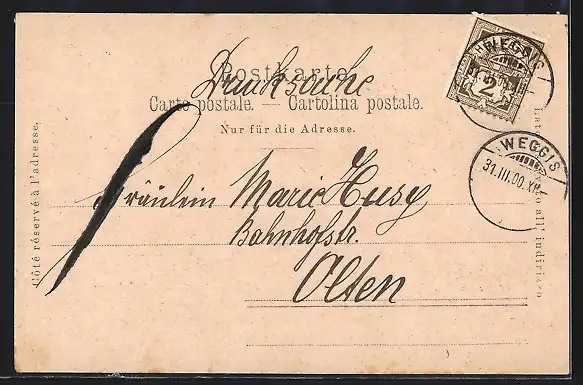 Postkarte.
Drucksache
Carte postale. — Cartolina postale.
Nur für die Adresse.
Côté réservé à l'adresse.
Fräulein Marie Husy
Bahnhofstr.
Olten
WEGGIS
2
WEGGIS
31.III.00.XII
all' indirizzo